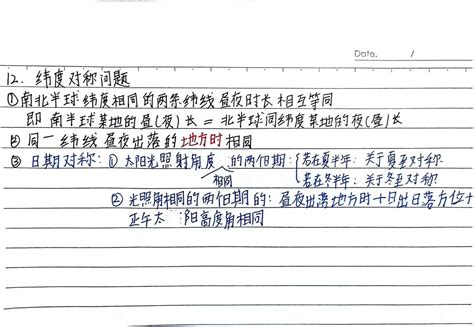 Date. /
12. 纬度对称问题
①南北半球纬度相同的两条纬线昼夜时长相互等同
即 南半球某地的昼(夜)长 = 北半球同纬度某地的夜(昼)长
② 同一纬线昼夜出落的地方时相同
③ 日期对称: ① 太阳光照射角度 的两个日期: 若在夏半年: 关于夏至对称
相同 若在冬半年: 关于冬至对称
② 光照角相同的两个日期的: 昼夜出落地方时+日出日落方位+
正午太阳高度角相同